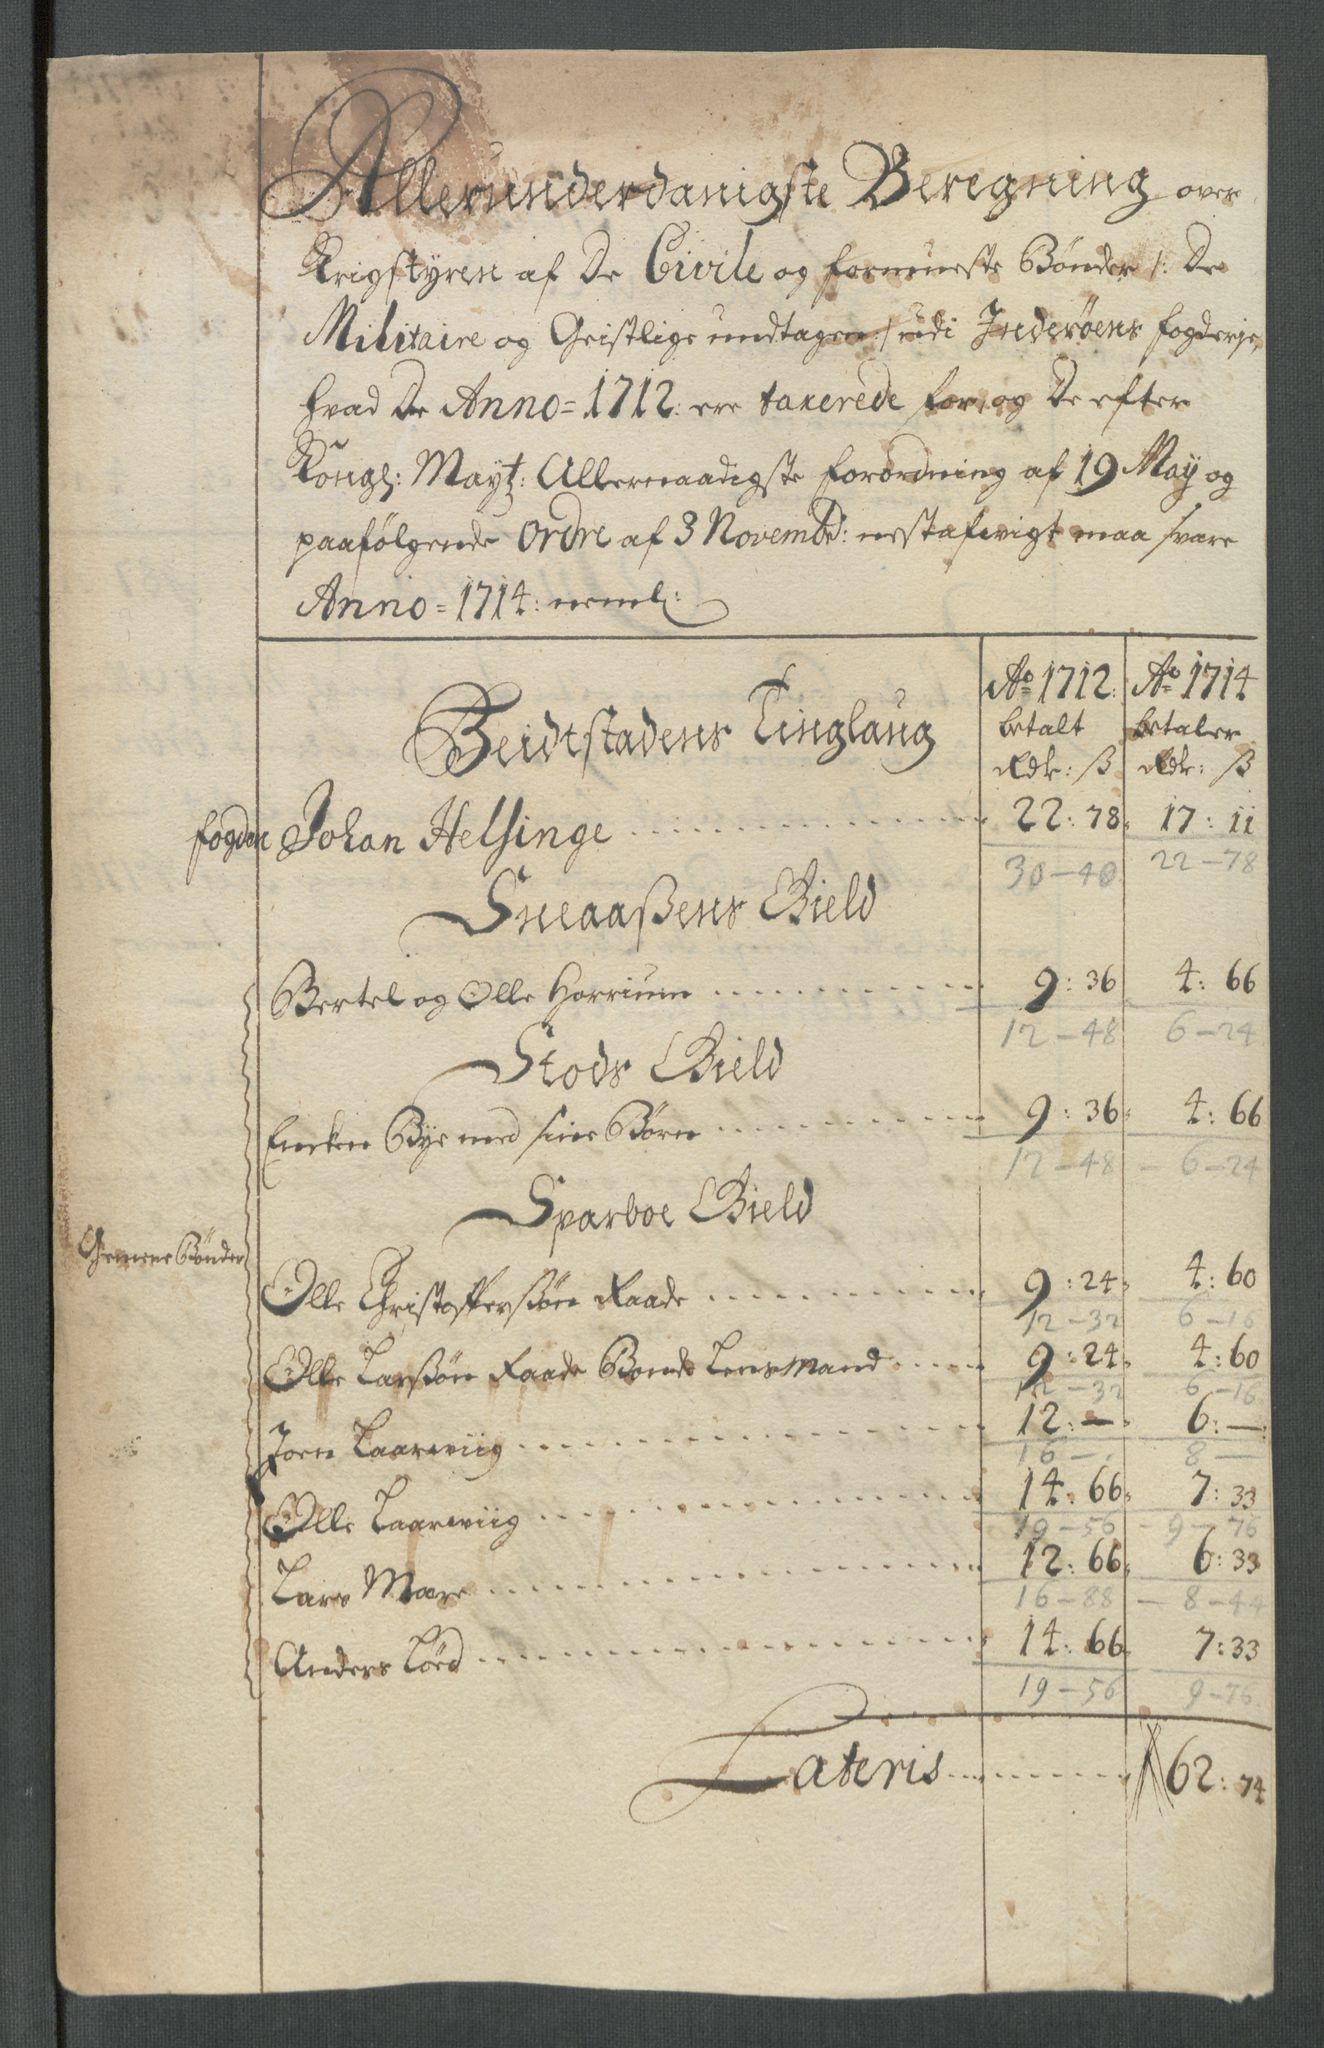 Allerunderdanigste Beregning over
Krigstyren af De Civile og formueste Bønder /: De
Militaire og Geistlige undtagen :/ udi Inderøens fogderje,
hvad De Anno = 1712: ere taxerede for, og De efter
Kongl: Mayt: Allernaadigste forordning af 19 May og
paafølgende Ordre af 3 Novembr: nestafvigt maa svare
Anno = 1714: neml:
Ao 1712: Ao 1714
Beidtstadens Tinglaug betalt betaler
Rdr: ß Rdr: ß
fogden Johan Helsinge 22: 78 17: 11
30-40 22-78
Sneaaßens Gield
Bertel og Olle Horrium 9: 36 4: 66
12-48 6-24
Stods Gield
Encken Bye med sine Børn 9: 36 4: 66
12-48 6-24
Sparboe Gield
Gemene Bønder
Olle Christoffersøn Raade 9: 24 4: 60
12-32 6-16
Olle Larßøn Raade Bonde Lensmand 9: 24 4: 60
12-32 6-16
Joen Laarwiig 12: — 6: —
16 — 8 —
Olle Laarwiig 14: 66 7: 33
19-56 9-76
Lars Mære 12: 66 6: 33
16-88 8-44
Anders Lœd 14: 66 7: 33
19-56 9-76
Lateris 62: 74